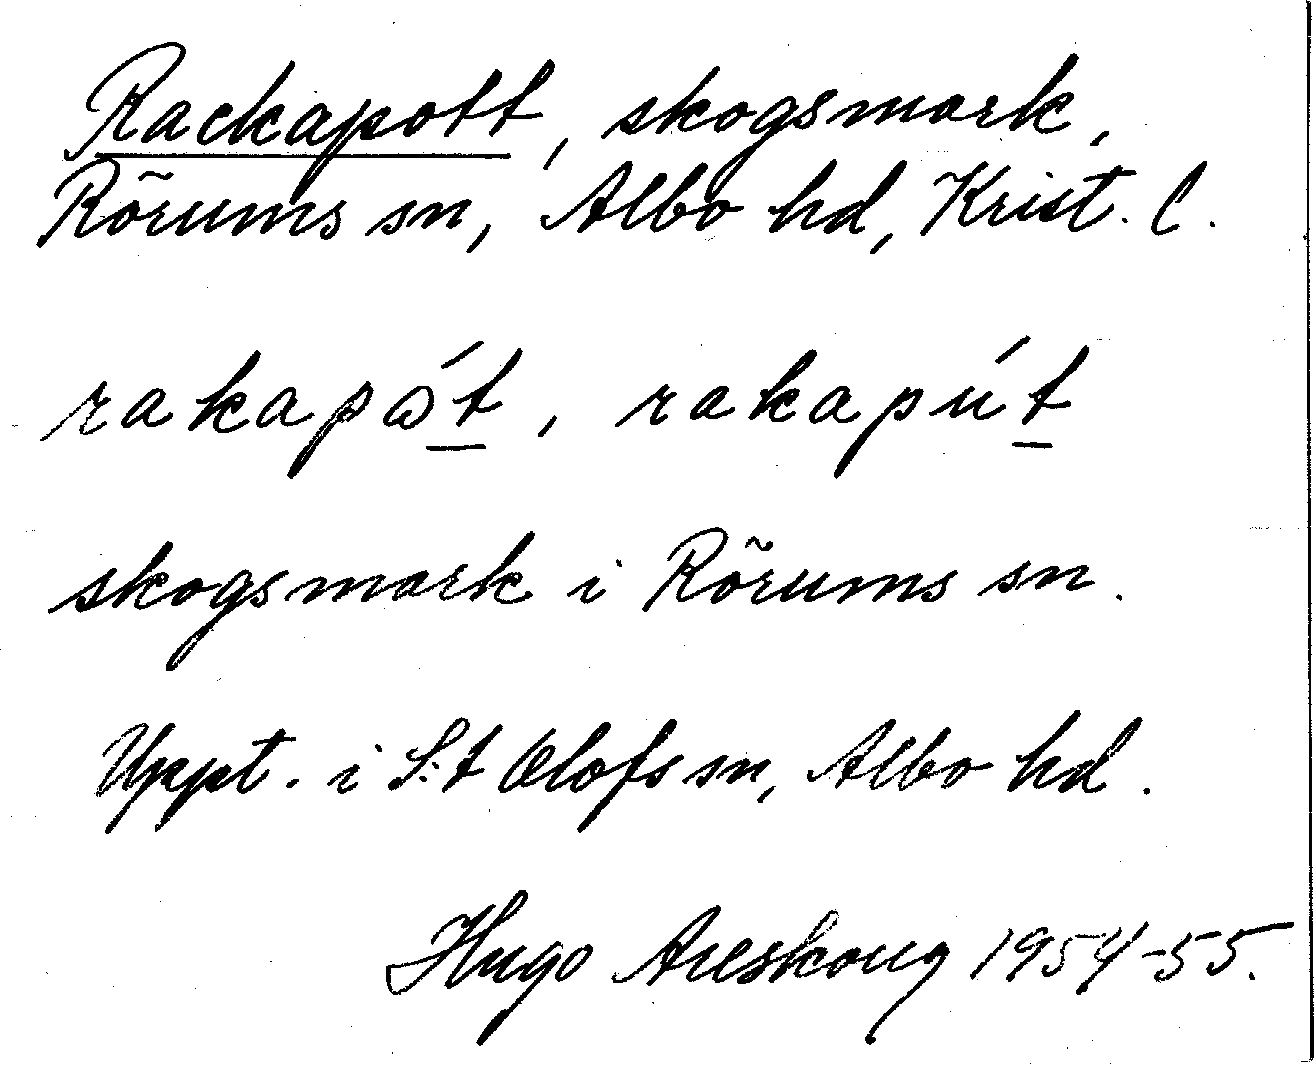 Rackapott, skogsmark,
Rõrums sn, Albo hd, Krist. l.
rakapɷ́t, rakapút
skogsmark i Rõrums sn.
Uppt. i S:t Olofs sn, Albo hd.
Hugo Areskoug 1954-55.